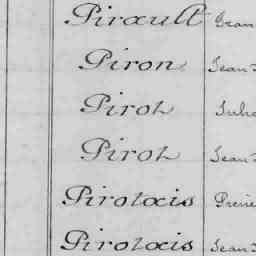 Pirault Jean
Piron Jean
Pirot
Pirot Jean
Pirotais
Pirotais Jean